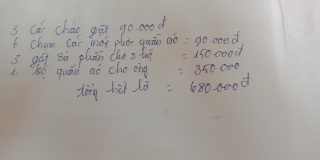 3 Cái Chảo giặt 90.000đ
6 Chụm Cái mới quần áo = 90.000đ
3 gật Sà phần cho 3 hộ = 150.000đ
1, bộ quần áo cho ông = 350.000
tổng hết là = 680.000đ